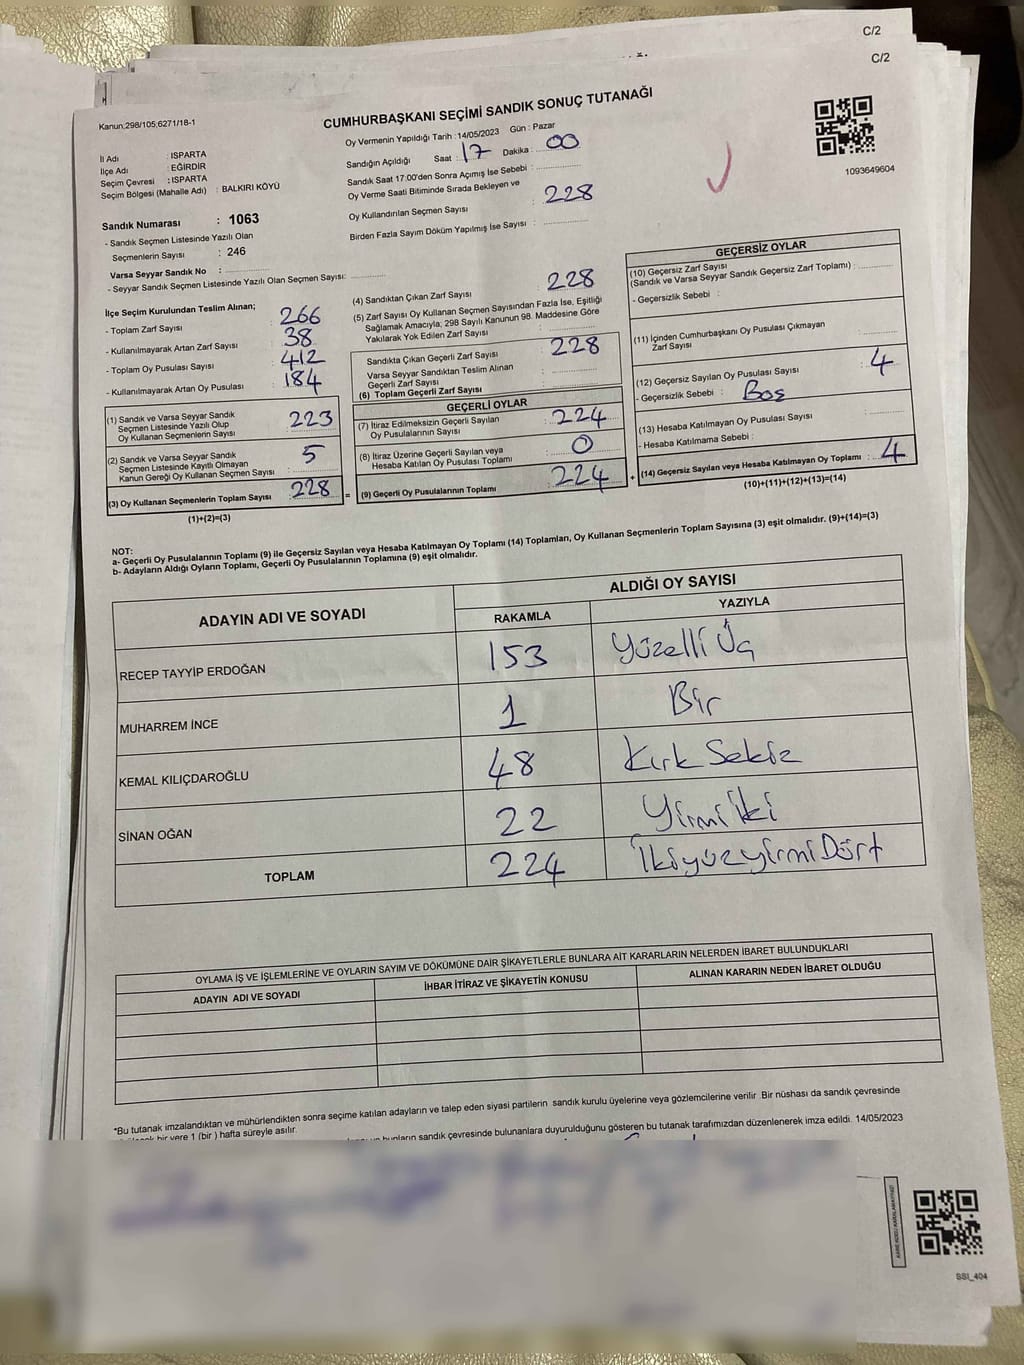 C/2
C/2
Kanun;298/105;6271/18-1
CUMHURBAŞKANI SEÇİMİ SANDIK SONUÇ TUTANAĞI
1093649604
İl Adı : ISPARTA
İlçe Adı : EĞİRDİR
Seçim Çevresi : ISPARTA
Seçim Bölgesi (Mahalle Adı) : BALKIRI KÖYÜ
Oy Vermenin Yapıldığı Tarih : 14/05/2023 Gün : Pazar
Sandığın Açıldığı Saat : 17 Dakika : 00
Sandık Saat 17:00'den Sonra Açımış İse Sebebi :
Oy Verme Saati Bitiminde Sırada Bekleyen ve
Oy Kullandırılan Seçmen Sayısı : 228
Birden Fazla Sayım Döküm Yapılmış İse Sayısı :
Sandık Numarası : 1063
- Sandık Seçmen Listesinde Yazılı Olan
Seçmenlerin Sayısı : 246
Varsa Seyyar Sandık No :
- Seyyar Sandık Seçmen Listesinde Yazılı Olan Seçmen Sayısı:
İlçe Seçim Kurulundan Teslim Alınan;
- Toplam Zarf Sayısı : 266
- Kullanılmayarak Artan Zarf Sayısı : 38
- Toplam Oy Pusulası Sayısı : 412
- Kullanılmayarak Artan Oy Pusulası : 184
(1) Sandık ve Varsa Seyyar Sandık
Seçmen Listesinde Yazılı Olup
Oy Kullanan Seçmenlerin Sayısı : 223
(2) Sandık ve Varsa Seyyar Sandık
Seçmen Listesinde Kayıtlı Olmayan
Kanun Gereği Oy Kullanan Seçmen Sayısı : 5
(3) Oy Kullanan Seçmenlerin Toplam Sayısı : 228 =
(1)+(2)=(3)
(4) Sandıktan Çıkan Zarf Sayısı : 228
(5) Zarf Sayısı Oy Kullanan Seçmen Sayısından Fazla İse, Eşitliği
Sağlamak Amacıyla; 298 Sayılı Kanunun 98. Maddesine Göre
Yakılarak Yok Edilen Zarf Sayısı :
Sandıkta Çıkan Geçerli Zarf Sayısı : 228
Varsa Seyyar Sandıktan Teslim Alınan
Geçerli Zarf Sayısı :
(6) Toplam Geçerli Zarf Sayısı :
GEÇERLİ OYLAR
(7) İtiraz Edilmeksizin Geçerli Sayılan
Oy Pusulalarının Sayısı : 224
(8) İtiraz Üzerine Geçerli Sayılan veya
Hesaba Katılan Oy Pusulası Toplamı : 0
(9) Geçerli Oy Pusulalarının Toplamı : 224 +
GEÇERSİZ OYLAR
(10) Geçersiz Zarf Sayısı
(Sandık ve Varsa Seyyar Sandık Geçersiz Zarf Toplamı) :
- Geçersizlik Sebebi :
(11) İçinden Cumhurbaşkanı Oy Pusulası Çıkmayan
Zarf Sayısı :
(12) Geçersiz Sayılan Oy Pusulası Sayısı : 4
- Geçersizlik Sebebi : Boş
(13) Hesaba Katılmayan Oy Pusulası Sayısı :
- Hesaba Katılmama Sebebi :
(14) Geçersiz Sayılan veya Hesaba Katılmayan Oy Toplamı : 4
(10)+(11)+(12)+(13)=(14)
NOT:
a- Geçerli Oy Pusulalarının Toplamı (9) ile Geçersiz Sayılan veya Hesaba Katılmayan Oy Toplamı (14) Toplamları, Oy Kullanan Seçmenlerin Toplam Sayısına (3) eşit olmalıdır. (9)+(14)=(3)
b- Adayların Aldığı Oyların Toplamı, Geçerli Oy Pusulalarının Toplamına (9) eşit olmalıdır.
ADAYIN ADI VE SOYADI
ALDIĞI OY SAYISI
RAKAMLA YAZIYLA
RECEP TAYYİP ERDOĞAN 153 Yüzelli Üç
MUHARREM İNCE 1 Bir
KEMAL KILIÇDAROĞLU 48 Kırk Sekiz
SİNAN OĞAN 22 Yirmi İki
TOPLAM 224 İkiyüzyirmi Dört
OYLAMA İŞ VE İŞLEMLERİNE VE OYLARIN SAYIM VE DÖKÜMÜNE DAİR ŞİKAYETLERLE BUNLARA AİT KARARLARIN NELERDEN İBARET BULUNDUKLARI
ADAYIN ADI VE SOYADI İHBAR İTİRAZ VE ŞİKAYETİN KONUSU ALINAN KARARIN NEDEN İBARET OLDUĞU
*Bu tutanak imzalandıktan ve mühürlendikten sonra seçime katılan adayların ve talep eden siyasi partilerin sandık kurulu üyelerine veya gözlemcilerine verilir. Bir nüshası da sandık çevresinde
bir yere 1 (bir ) hafta süreyle asılır.
bunların sandık çevresinde bulunanlara duyurulduğunu gösteren bu tutanak tarafımızdan düzenlenerek imza edildi. 14/05/2023
SSI_404